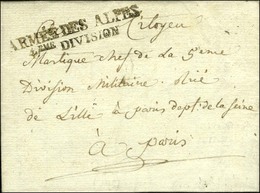 Citoyen
ARMÉE DES ALPES
4EME DIVISION
Martique chef de la 5eme
Division Militaire Rüé
de Lille à paris dopt. de la seine
à paris